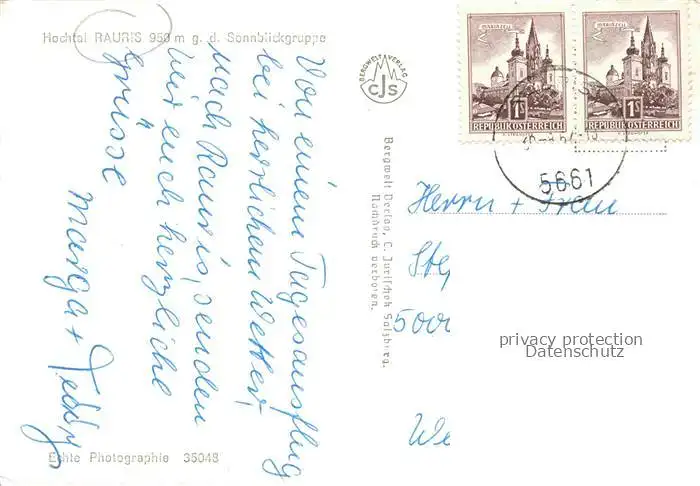 Hochtal RAURIS 950 m g. d. Sonnblickgruppe
Von einem Tagesausflug
bei herrlichen Wetter,
nach Rauris, senden
wir euch herzliche
Grüsse
Marga + Teddy
Echte Photographie 35048
BERGWELTVERLAG
CJS
Bergwelt Verlag, C. Jurischek Salzburg.
Nachdruck verboten.
MARIAZELL
1S
REPUBLIK ÖSTERREICH
MARIAZELL
1S
REPUBLIK ÖSTERREICH
5661
Herrn + Frau
Ste
500
We
privacy protection
Datenschutz